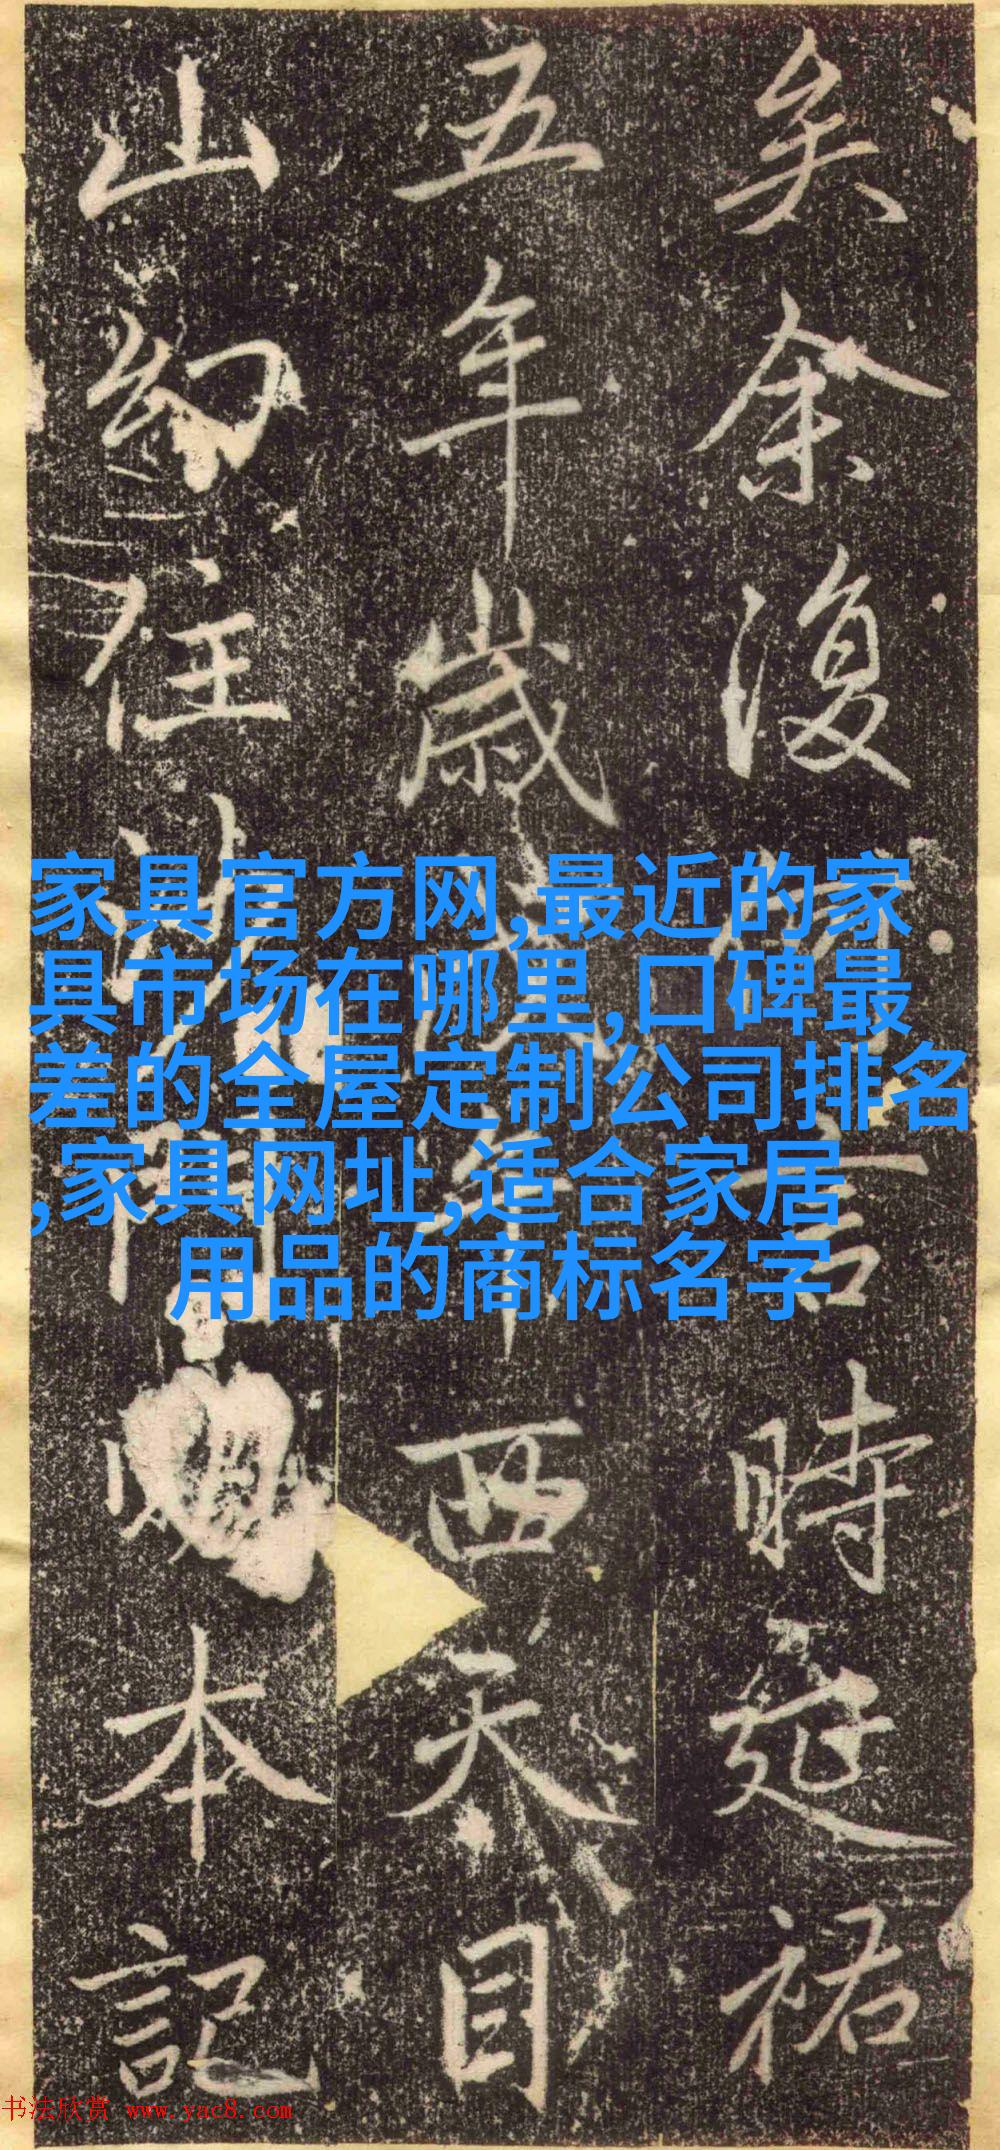 矣余復何言時延祐
五年歲戊午西天目
山幻住沙門明本記
家具官方网,最近的家
具市场在哪里,口碑最
差的全屋定制公司排名
,家具网址,适合家居
用品的商标名字
书法欣赏 www.yac8.com